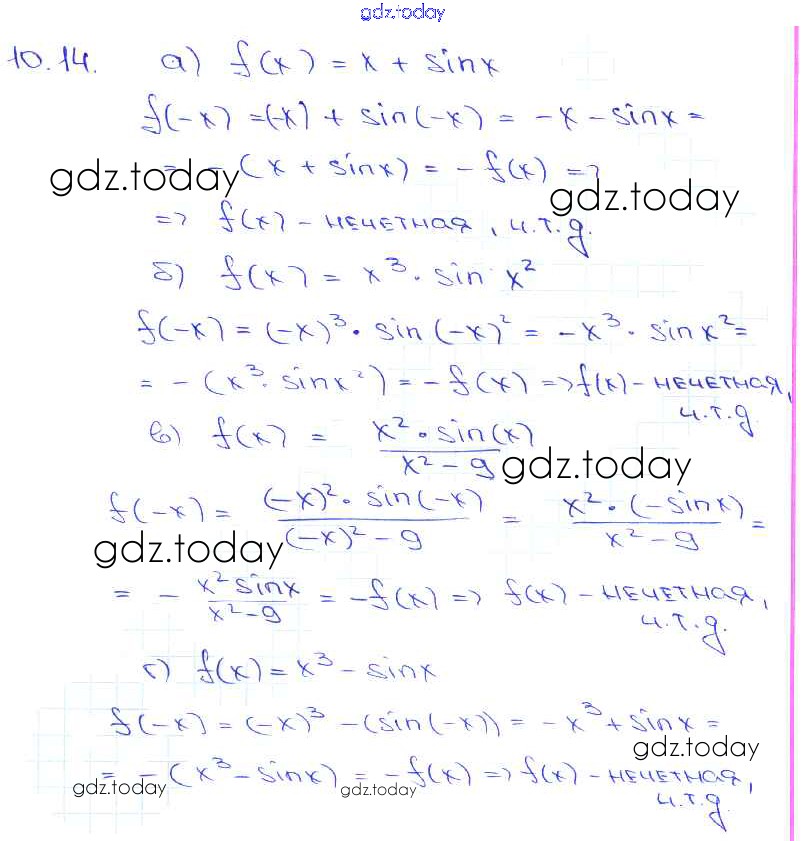 gdz.today
10.14. а) f(x) = x + sinx
f(-x) = (-x) + sin(-x) = -x - sinx =
= -(x + sinx) = -f(x) =>
gdz.today
gdz.today
=> f(x) - нечетная, ч.т.д.
б) f(x) = x³ · sin x²
f(-x) = (-x)³ · sin(-x)² = -x³ · sinx² =
= -(x³ · sinx²) = -f(x) => f(x) - нечетная,
ч.т.д.
в) f(x) = x² · sin(x) / x² - 9
gdz.today
f(-x) = (-x)² · sin(-x) / (-x)² - 9 = x² · (-sinx) / x² - 9 =
gdz.today
= - x² sinx / x² - 9 = -f(x) => f(x) - нечетная,
ч.т.д.
г) f(x) = x³ - sinx
f(-x) = (-x)³ - (sin(-x)) = -x³ + sinx =
gdz.today
= -(x³ - sinx) = -f(x) => f(x) - нечетная,
gdz.today
gdz.today
ч.т.д.